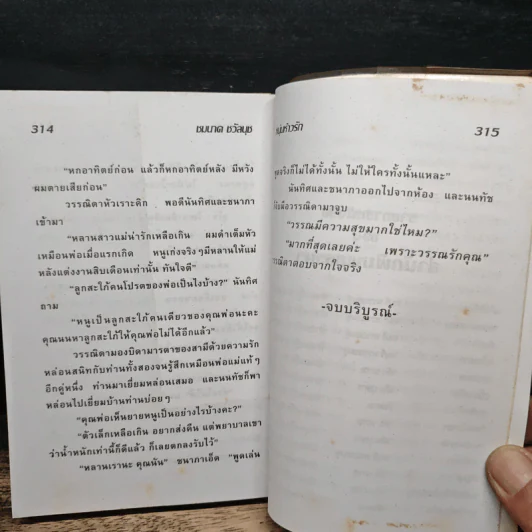 314
ชมนาด ชวัลนุช
"หกอาทิตย์ก่อน แล้วก็หกอาทิตย์หลัง มีหวัง
ผมตายเสียก่อน"
วรรณิตาหัวเราะคิก พอดีนันทิศและชนาภา
เข้ามา
"หลานสาวแม่น่ารักเหลือเกิน ผมดำเต็มหัว
เหมือนพ่อเมื่อแรกเกิด หนูเก่งจริงๆ มีหลานให้แม่
หลังแต่งงานสิบเดือนเท่านั้น ทันใจดี"
"ลูกสะใภ้คนโปรดของพ่อเป็นไงบ้าง?" นันทิศ
ถาม
"หนูเป็นลูกสะใภ้คนเดียวของคุณพ่อนะคะ
คุณนนหาลูกสะใภ้ให้คุณพ่อไม่ได้อีกแล้ว"
วรรณิตามองบิดามารดาของสามีด้วยความรัก
หล่อนสนิทกับท่านทั้งสองจนรู้สึกเหมือนพ่อแม่แท้ๆ
อีกคู่หนึ่ง ท่านมาเยี่ยมหล่อนเสมอ และนนทัชก็พา
หล่อนไปเยี่ยมบ้านท่านบ่อยๆ
"คุณพ่อเห็นยายหนูเป็นอย่างไรบ้างคะ?"
"ตัวเล็กเหลือเกิน อยากส่งคืน แต่พยาบาลเขา
ว่าน้ำหนักเท่านี้ก็ดีแล้ว ก็เลยตกลงรับไว้"
"หลานเรานะ คุณนัน" ชนาภาเอ็ด "พูดเล่น
315
จริงก็ไม่ได้ทั้งนั้น ไม่ให้ใครทั้งนั้นแหละ"
นันทิศและชนาภาออกไปจากห้อง และนนทัช
มือวรรณิตามาจูบ
"วรรณมีความสุขมากใช่ไหม?"
"มากที่สุดเลยค่ะ เพราะวรรณรักคุณ"
วรรณิตาตอบจากใจจริง
-จบบริบูรณ์-